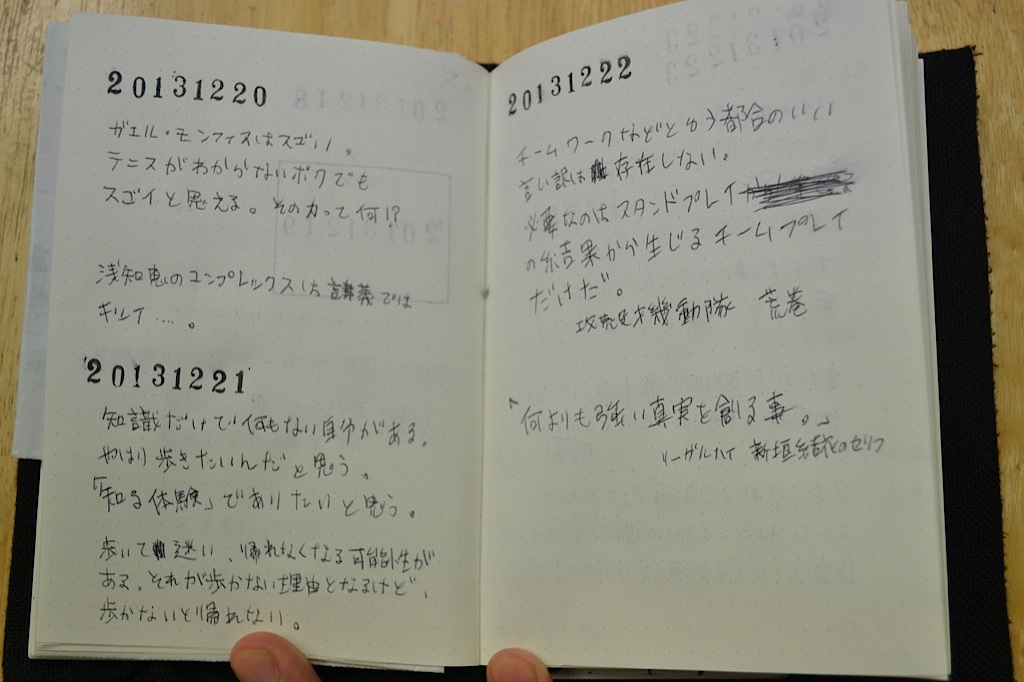 20131220
ガエル・モンフィスはスゴい。
テニスがわからないボクでも
スゴイと思える。その力って何!?
浅知恵のコンプレックスは講義では
キツイ....。
20131221
知識だけで何もない自分がある。
やはり歩きたいんだと思う。
「知る体験」でありたいと思う。
歩いて迷い、帰れなくなる可能性が
ある。それが歩かない理由となるけど、
歩かないと帰れない。
20131222
チームワークなどとゆう都合のいい
言い訳は存在しない。
必要なのはスタンドプレイ
の結果から生じるチームプレイ
だけだ。
攻殻機動隊 荒巻
「何よりも強い真実を創る事。」
リーガルハイ 新垣結衣のセリフ